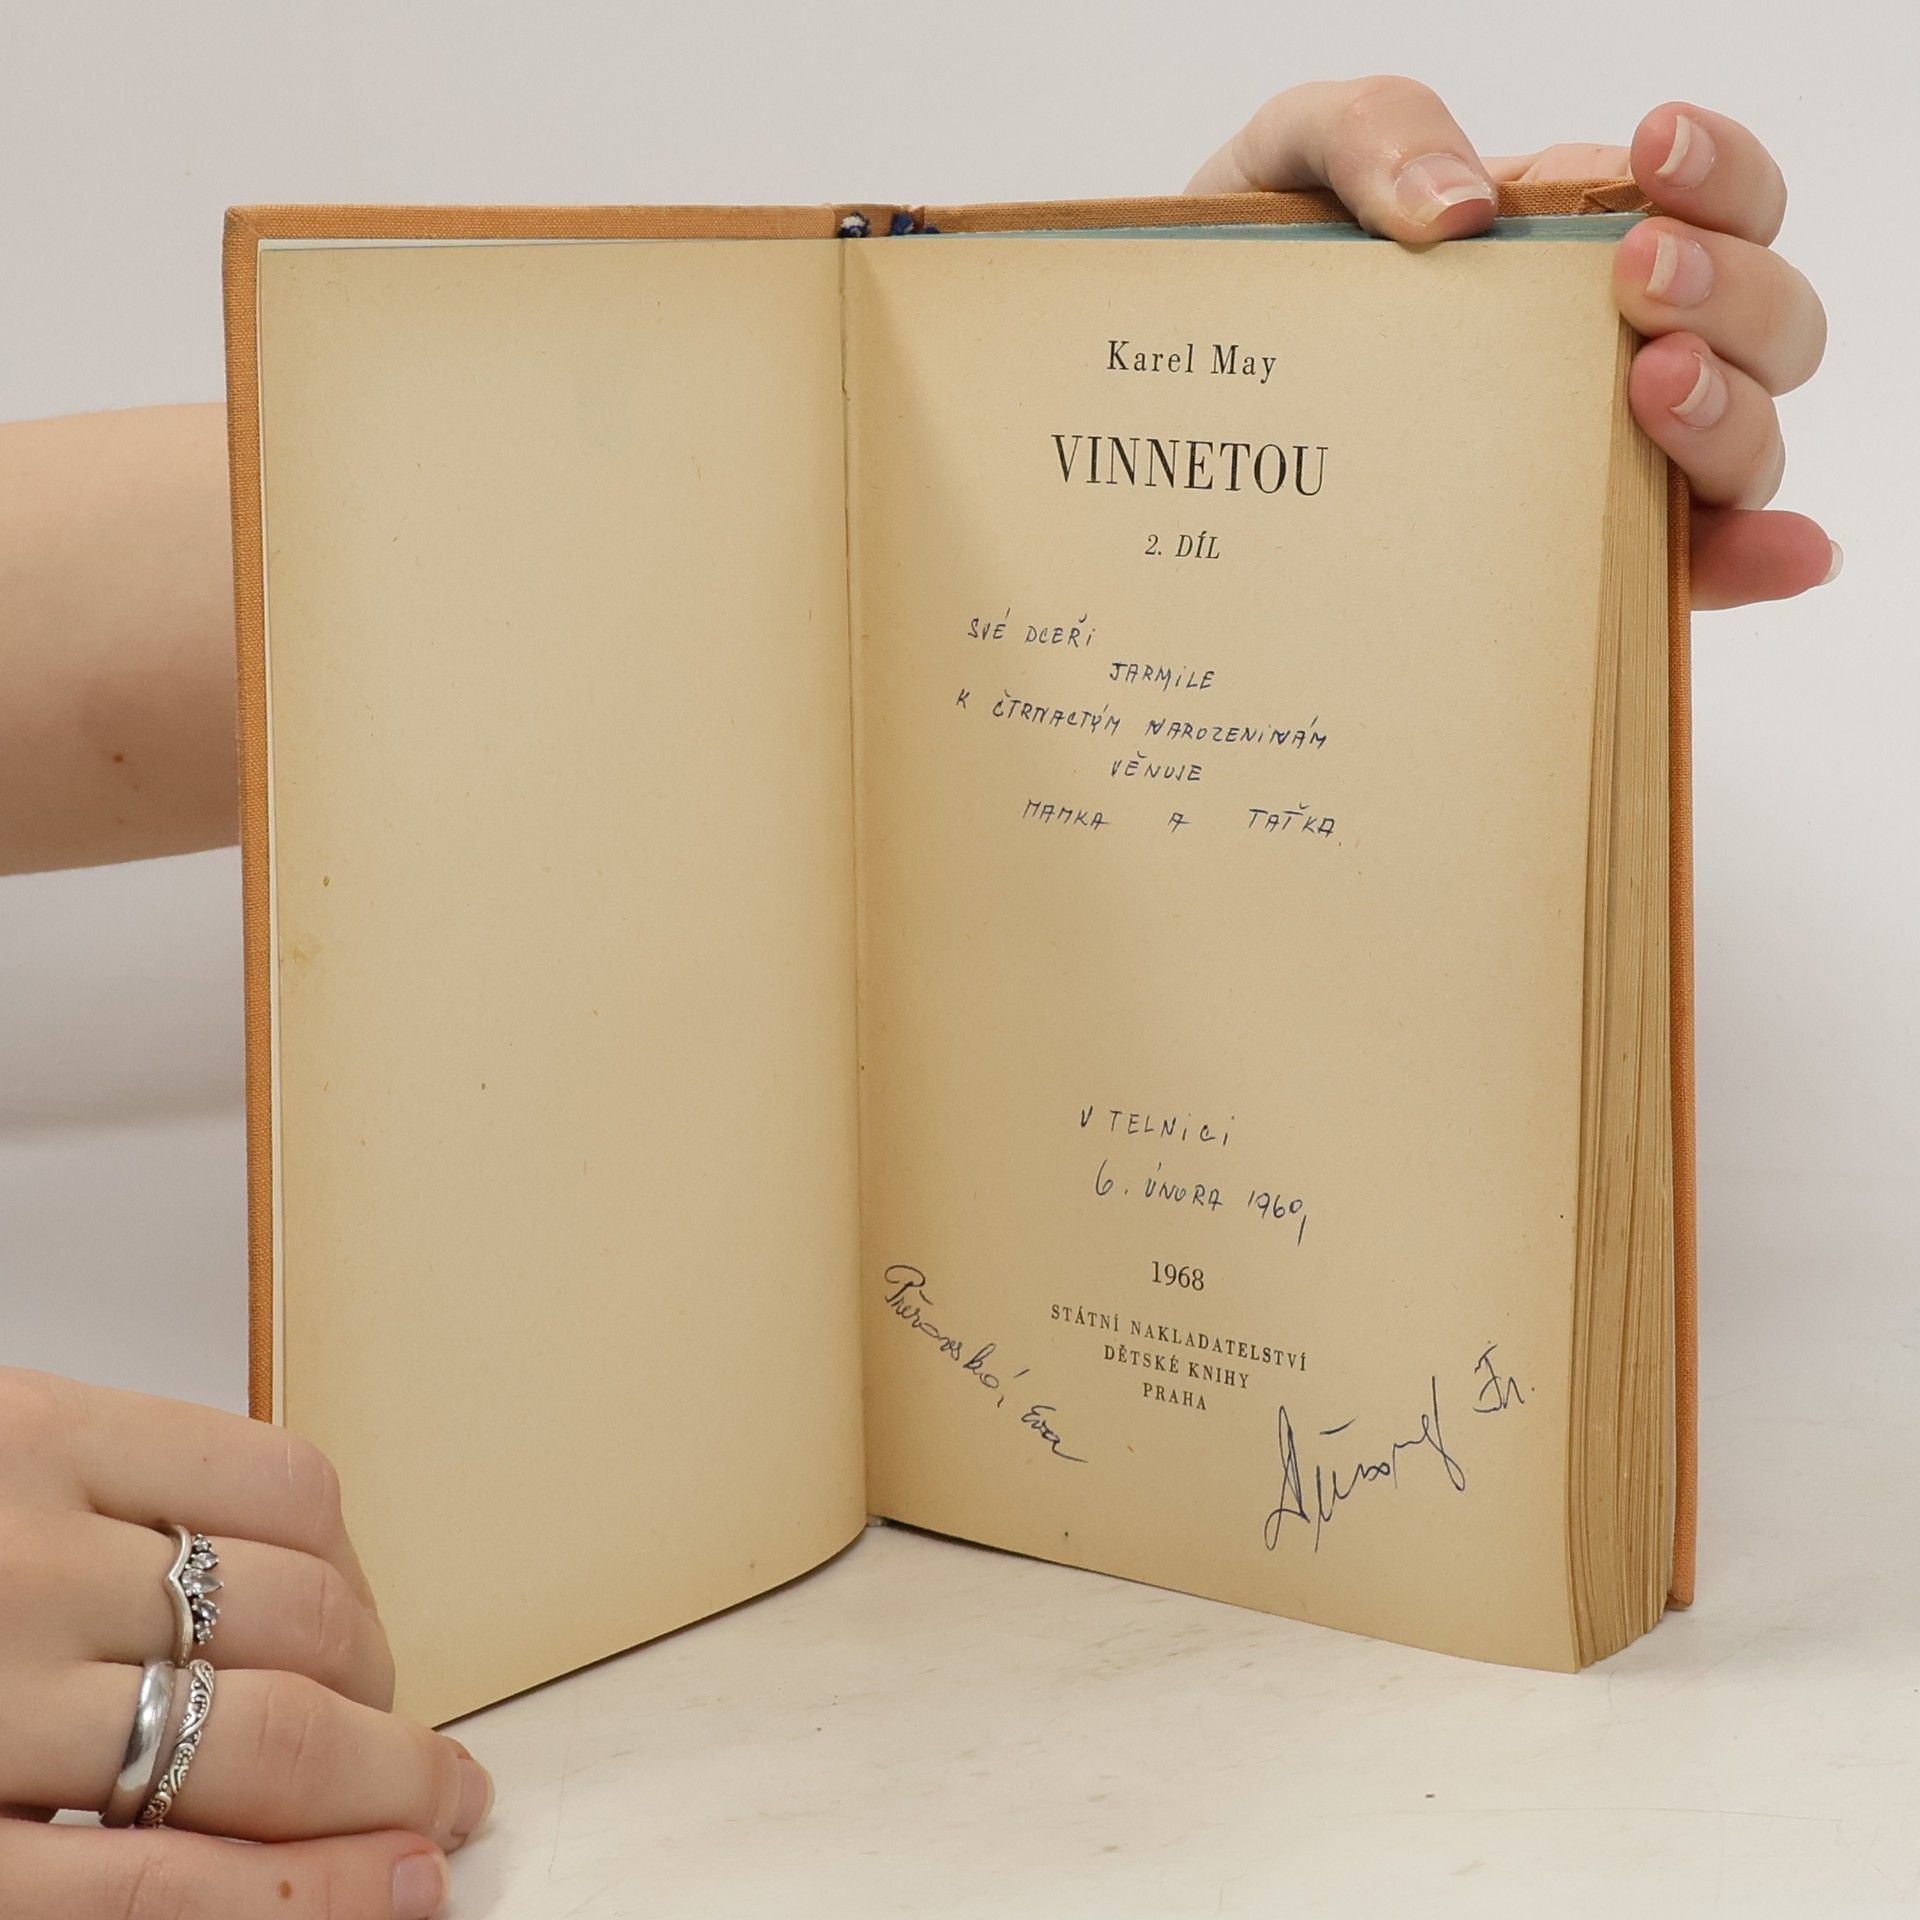 Karel May
VINNETOU
2. DÍL
SVÉ DCEŘi
JARMiLE
K ČTRNACTÝM NAROZENiNÁM
VĚNUJE
MAMKA A TAŤKA.
V TELNiCi
6. ÚNORA 1969,
1968
STÁTNÍ NAKLADATELSTVÍ
DĚTSKÉ KNIHY
PRAHA
Eva